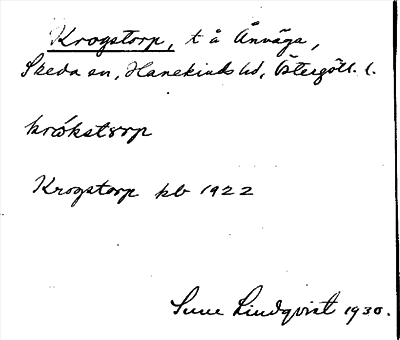 Krogstorp, t å Ånväga,
Skeda sn, Hanekinds hd, Östergötl. l.
krókstorp
Krogstorp kb 1922
Sune Lindqvist 1930.